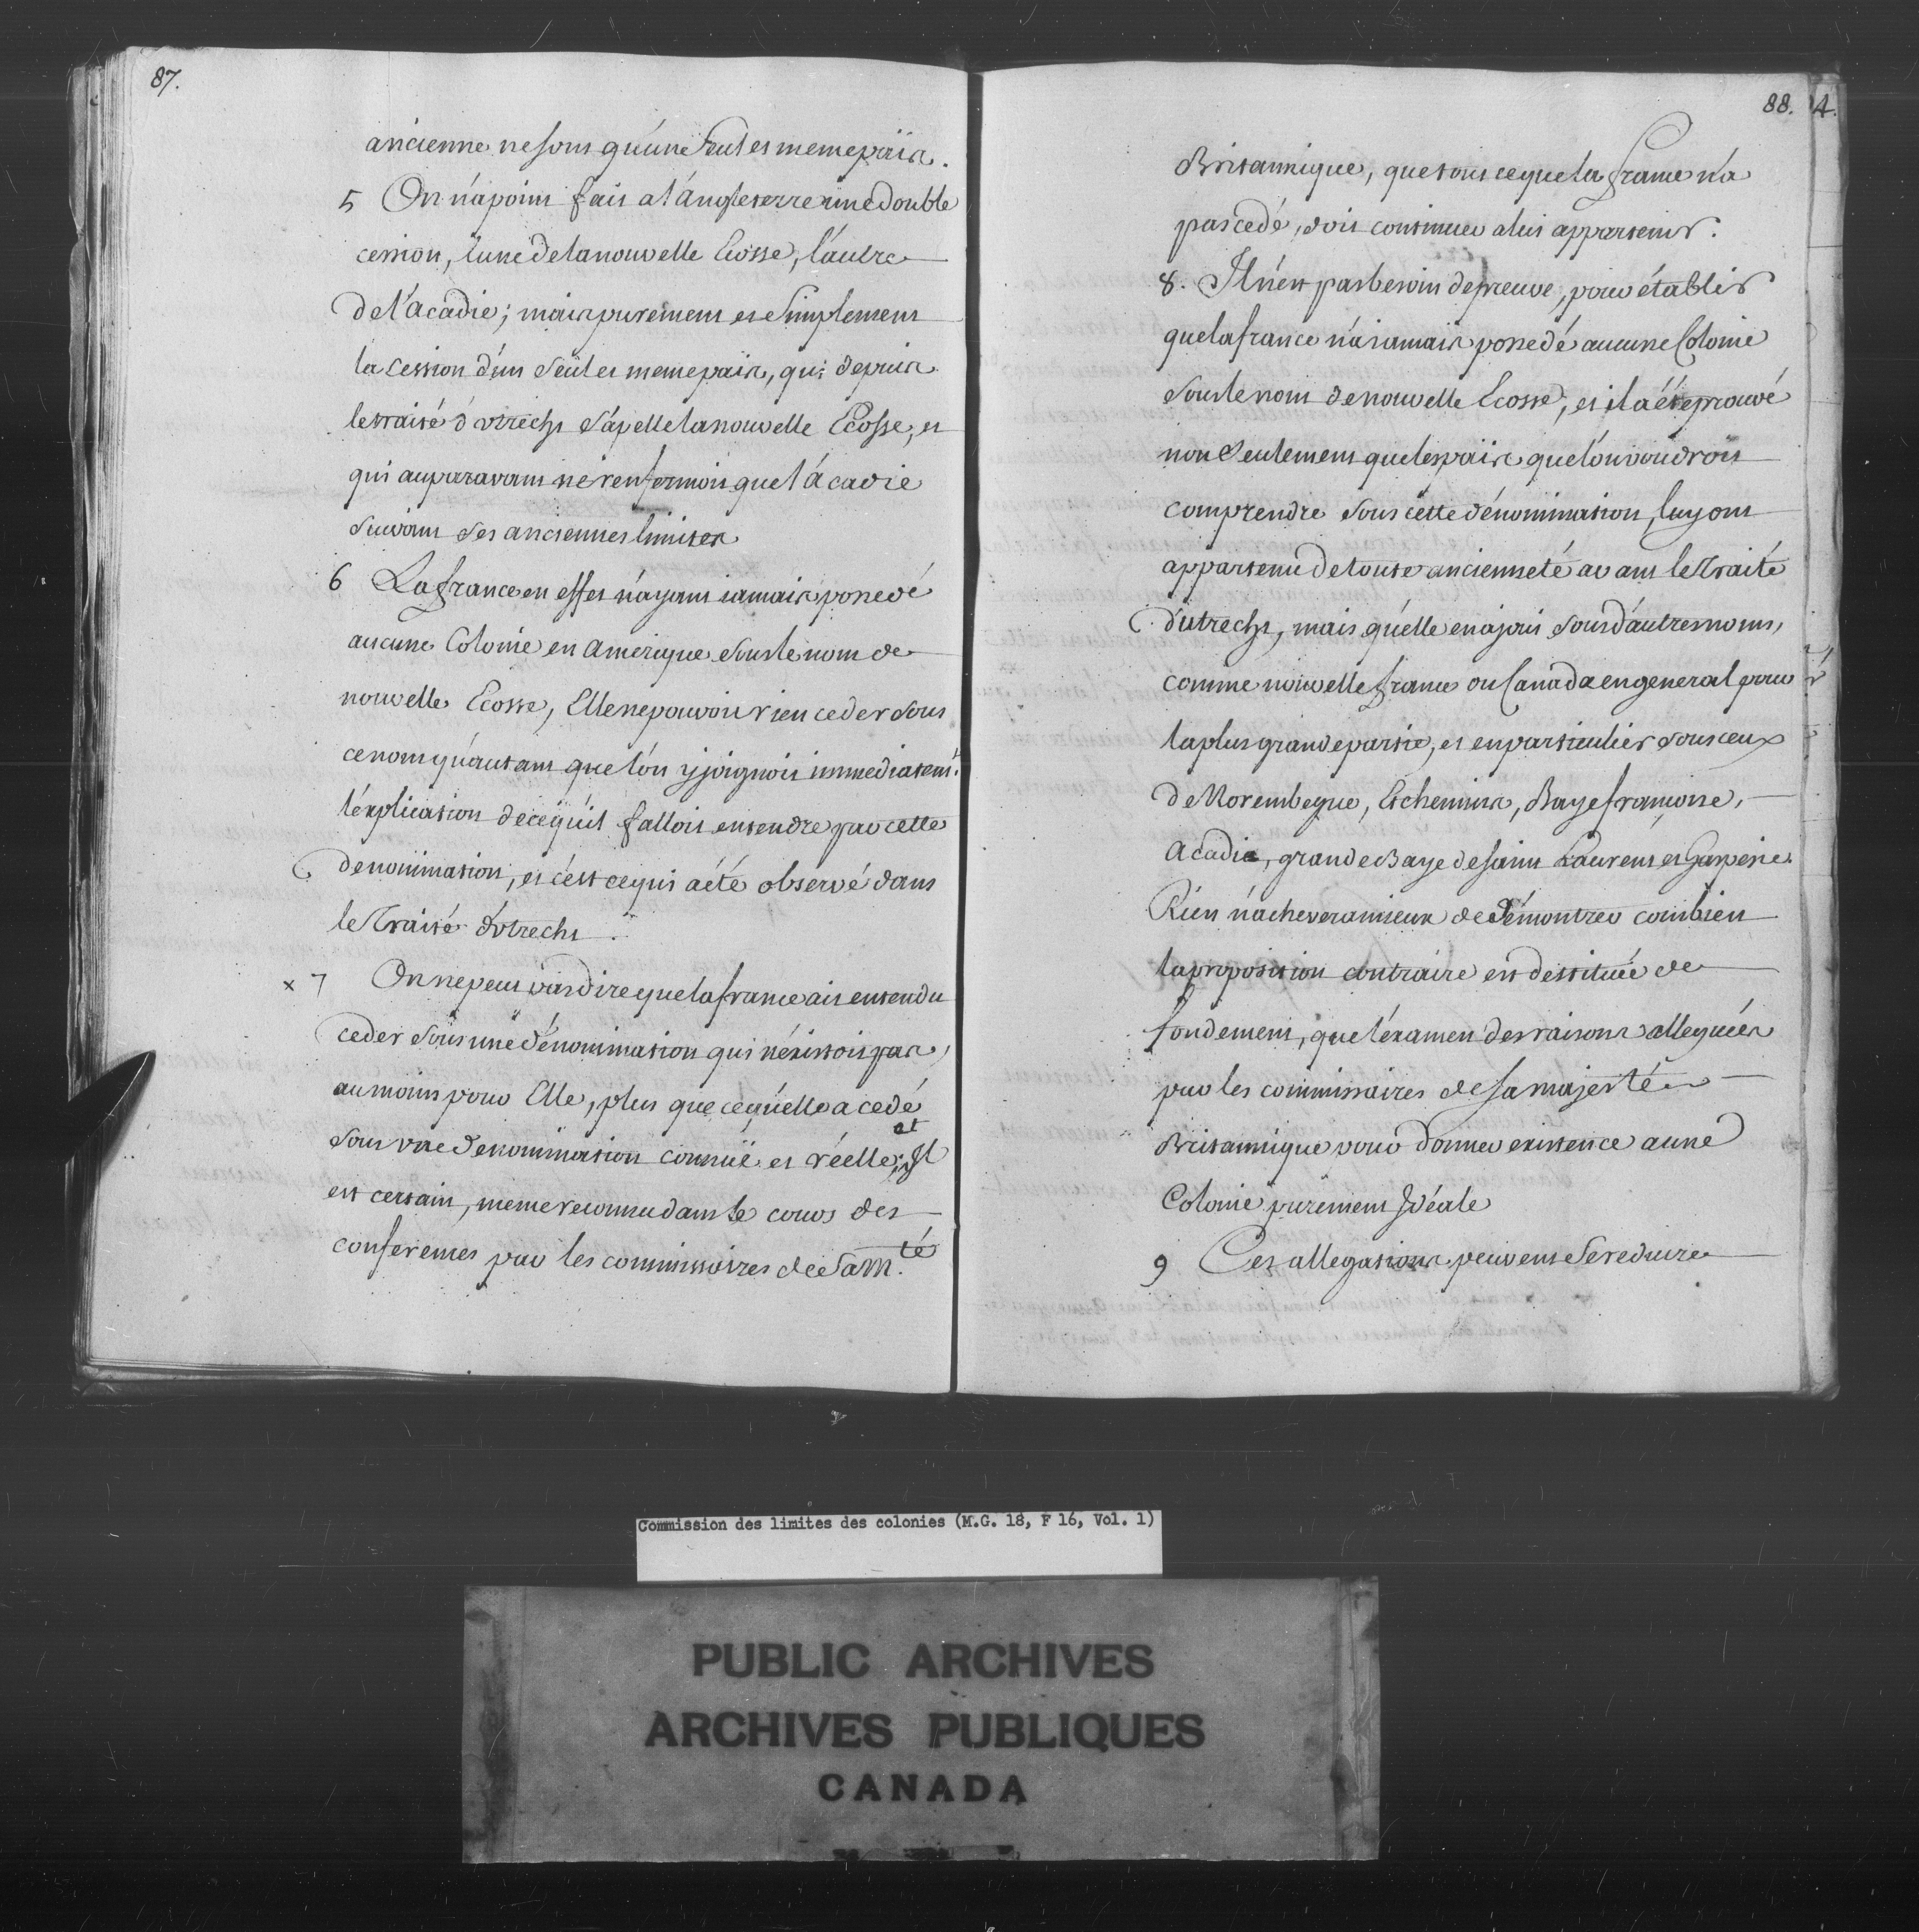 87.
ancienne ne sont qu'une seul et meme païs.
5 On n'a point fait a l'angleterre une double
cession, l'une de la nouvelle Ecosse, l'autre
de l'acadie; mais purement et simplement
la cession d'un seul et meme païs, qui depuis
le traité d'utrecht s'apelle la nouvelle Ecosse, et
qui auparavant ne renfermoit que l'acadie
suivant ses anciennes limites
6 La france en effet n'ayant jamais possedé
aucune Colonie en amerique sous le nom de
nouvelle Ecosse, Elle ne pouvoit rien ceder sous
ce nom qu'autant que l'on y joignoit immediatemt.
l'explication de ce qu'il falloit entendre par cette
denomination, et c'est ce qui a été observé dans
le Traité d'Utrecht.
x 7 On ne peut pas dire que la france ait entendu
ceder sous une dénomination qui n'éxistoit pas,
au moins pour Elle, plus que ce qu'elle a cedé
sous une denomination connuë et réelle; et Il
est certain, meme reconnu dans le cours des
conferences par les commissaires de Sa M.té
88. 4.
Britannique, que tout ce que la france n'a
pas cedé, doit continuer a lui appartenir.
8. Il n'est pas besoin de preuve, pour établir
que la france n'a jamais possedé aucune Colonie
sous le nom de nouvelle Ecosse, et il a été prouvé
non seulement que les païs que l'on voudroit
comprendre sous cette dénomination, luy ont
appartenu de toute ancienneté avant le Traité
d'utrecht, mais qu'elle en a joui sous d'autres noms,
comme nouvelle france ou Canada en general pour
la plus grande partie, et en particulier sous ceux
de Norembegue, Etchemins, Baye françoise,
Acadie, grande Baye de saint Laurent et Gaspesie.
Rien n'achevera mieux de démontrer combien
la proposition contraire est destituée de
fondement, que l'éxamen des raisons alleguées
par les commissaires de sa majesté
Britannique pour donner existence a une
Colonie purement Idéale
9 Ces allegations peuvent se reduire
Commission des limites des colonies (M.G. 18, F 16, Vol. 1)
PUBLIC ARCHIVES
ARCHIVES PUBLIQUES
CANADA